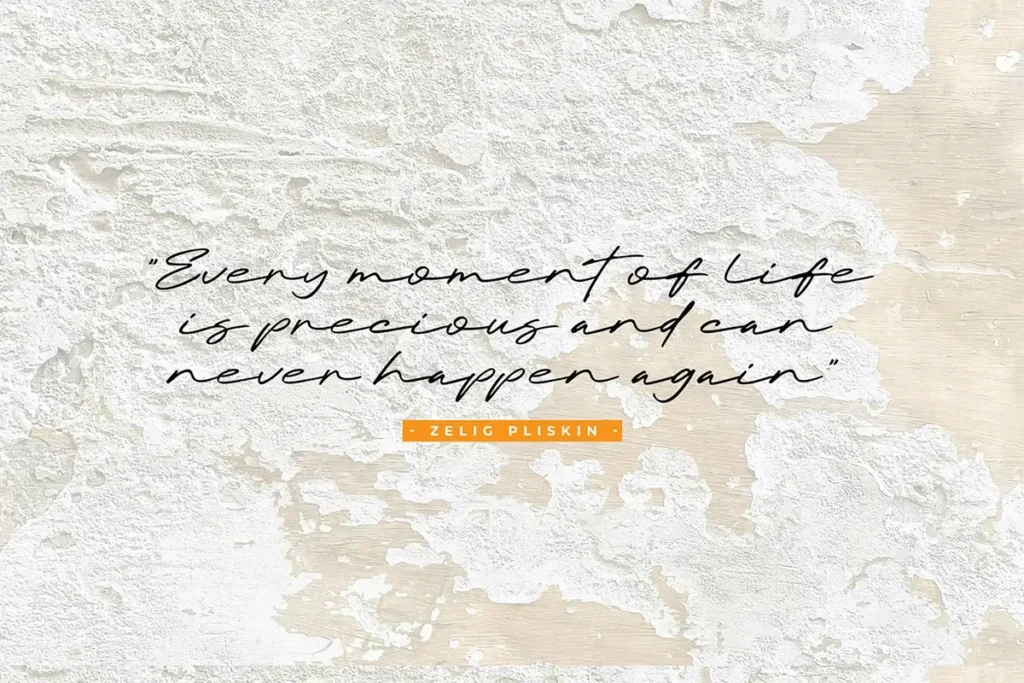 "Every moment of life
is precious and can
never happen again"
- ZELIG PLISKIN -